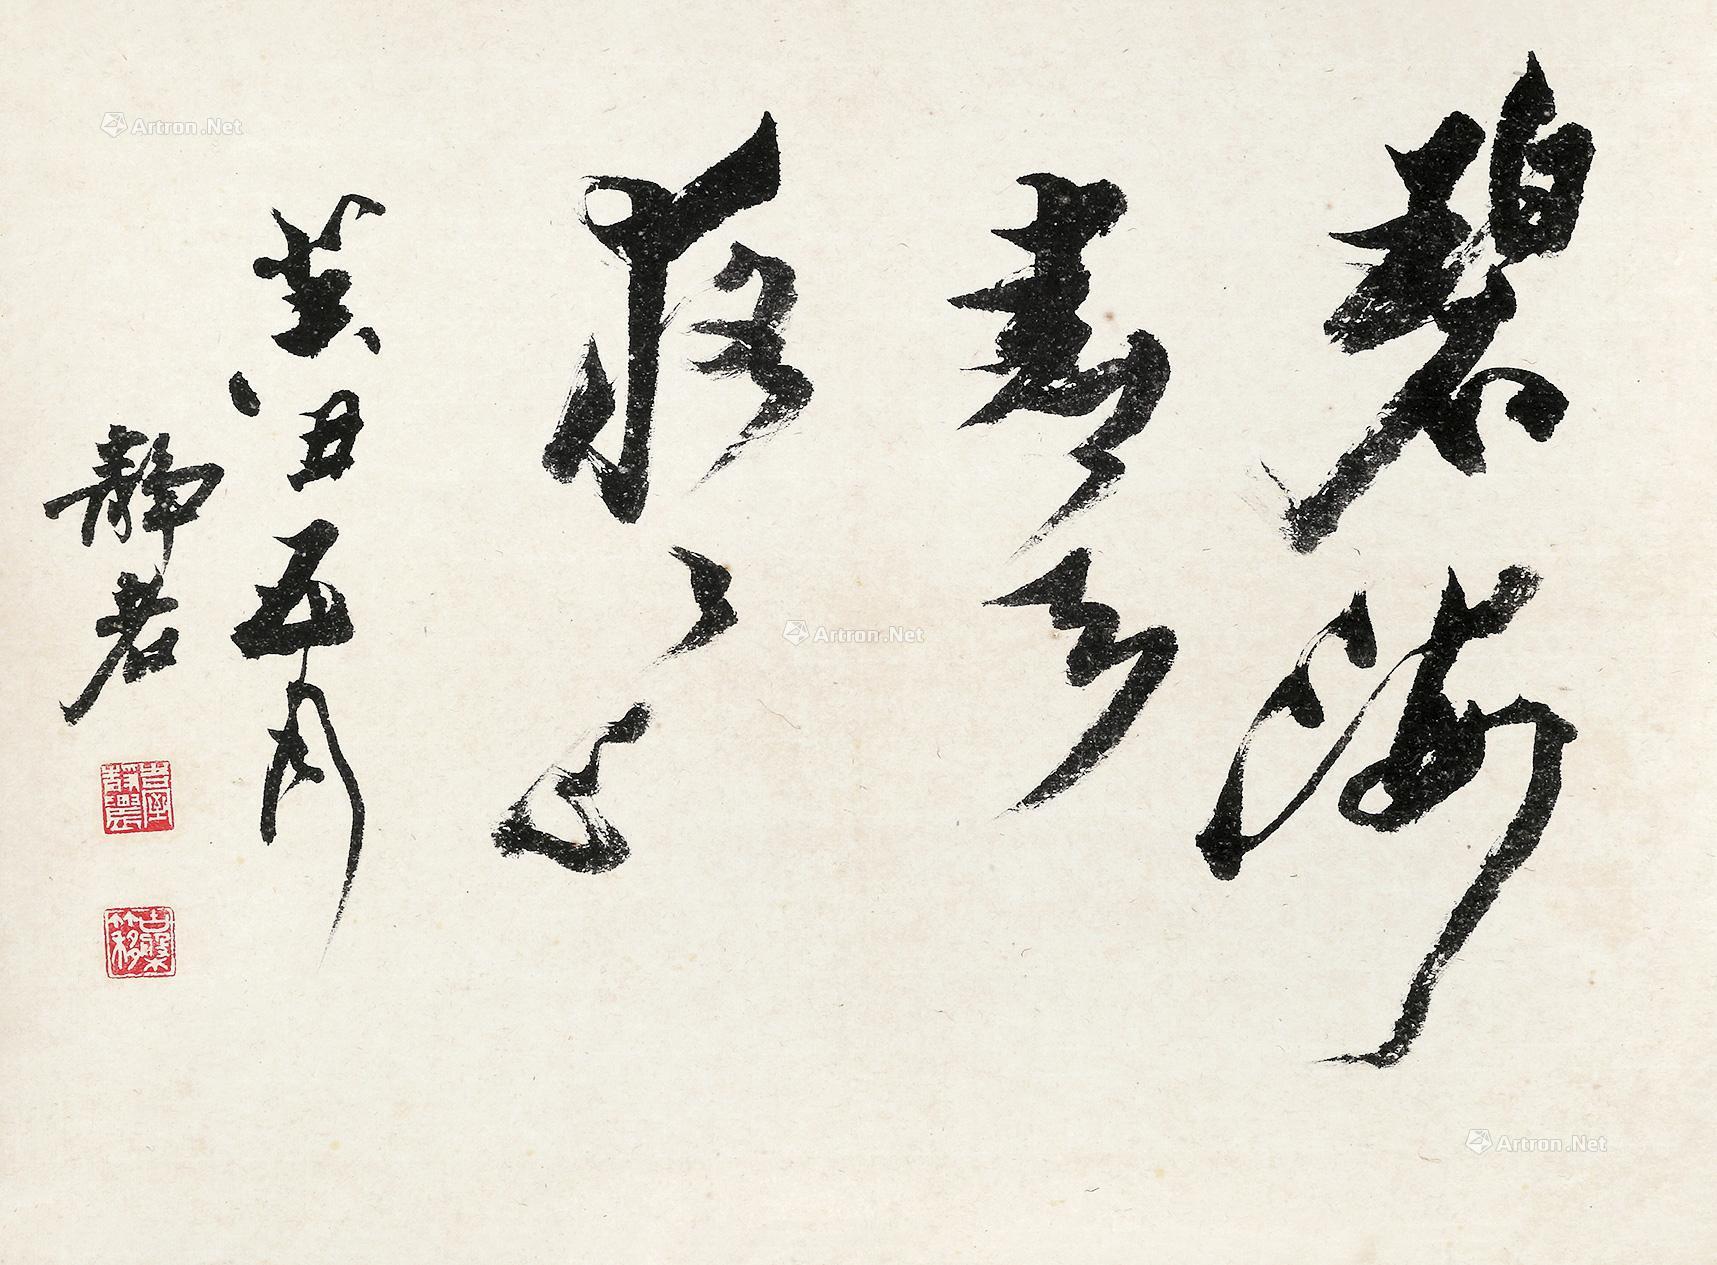 碧海
青天
夜〻心
癸丑五月
靜者
Artron.Net
Artron.Net
Artron.Net